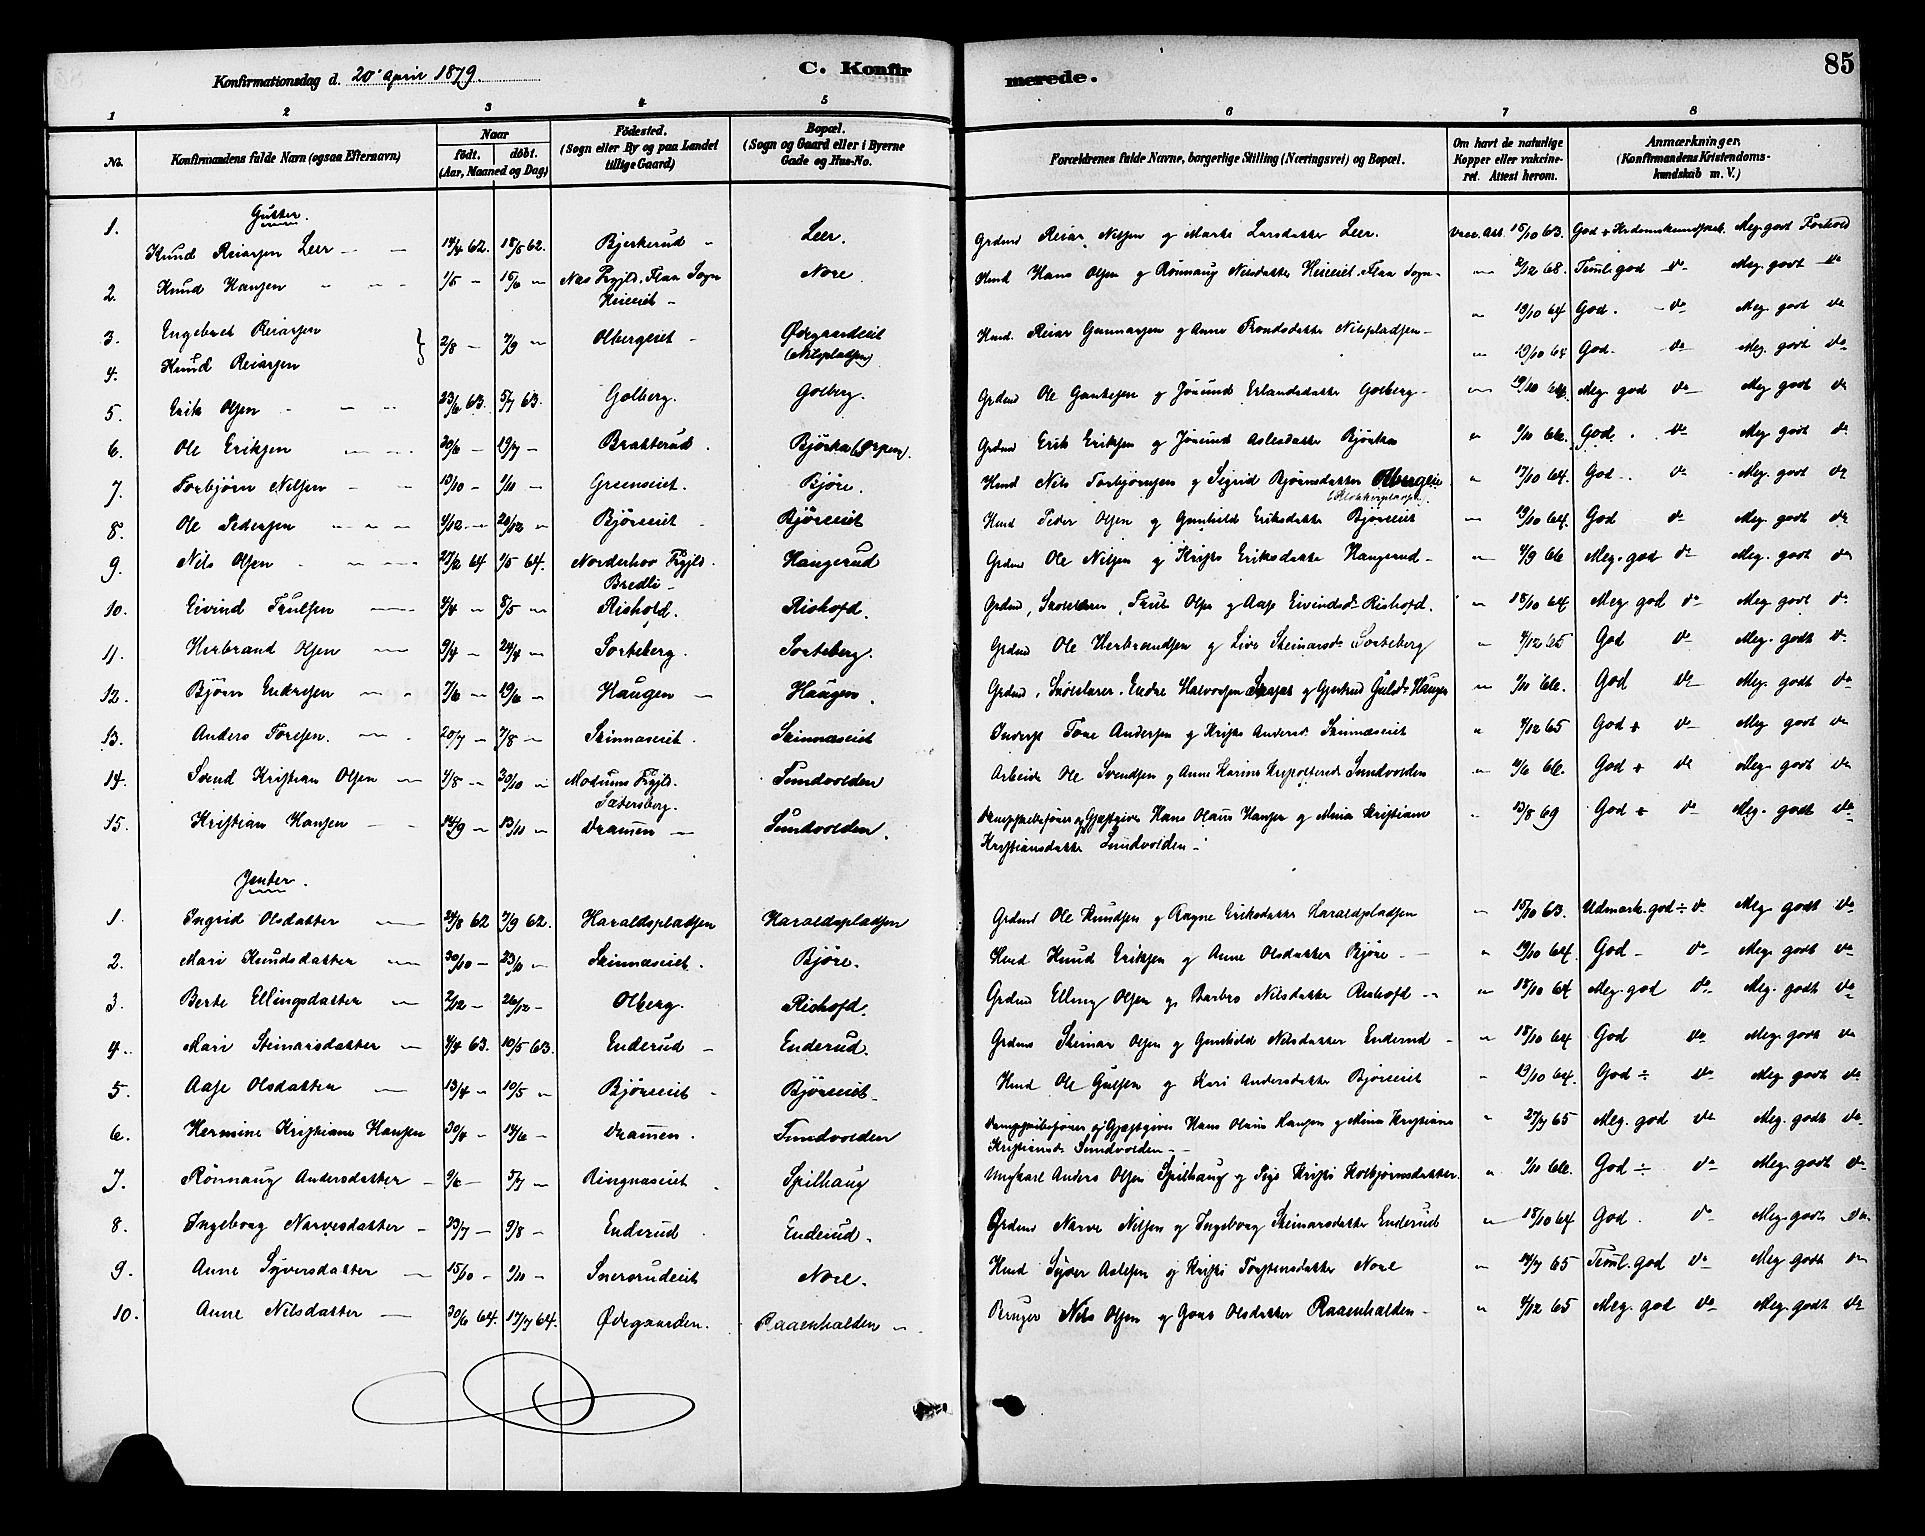 Konfirmationsdag d. 20' April 1879. C. Konfirmerede. 85
1 2 3 4 5 6 7 8
No. Konfirmandens fulde Navn (ogsaa Efternavn) Naar födt. döbt. (Aar, Maaned og Dag) Födested. (Sogn eller By og paa Landet tillige Gaard) Bopæl. (Sogn og Gaard eller i Byerne Gade og Hus-No. Forældrenes fulde Navne, borgerlige Stilling (Næringsvei) og Bopæl. Om havt de naturlige Kopper eller vakcineret. Attest herom. Anmærkninger. (Konfirmandens Kristendomskundskab m. V.)
Gutter.
1. Knud Reiarsen Leer 14/4 62. 18/5 62. Bjerkerud Leer. Grdmd Reiar Nilsen og Marte Larsdatter Leer. Vacc. Att. 15/10 63. God Meg. godt Forhold
2. Knud Hansen 1/5 15/6 Næs Prgjld. Flaa Sogn Nore. Hmd Hans Olsen og Rönnaug Nilsdatter Flaa Sogn 2/12 68. Teml. god do Meg. godt do
3. Engebret Reiarsen 2/8 7/9 Olbergeiet Ödegaardseiet (Nilspladsen) Hmd. Reiar Gunnarsen og Anne Trondsdatter Nilspladsen 19/10 64 God. do Meg. godt do
4. Knud Reiarsen 19/10 64 God. do Meg. godt do
5. Erik Olsen 23/6 63. 5/7 63. Golberg. Golberg. Grdmd Ole Jörund Erlandsdatter Golberg 19/10 64. Meg. god do Meg. godt do
6. Ole Eriksen 20/6 19/7 Brakterud. Björka Grdmd Erik Eriksen og Jörund Aslesdatter Björka 1/10 66. God. do Meg. godt do
7. Torbjörn Nilsen 13/10 1/11 Greenseiet. Björe. Hmd Nils Torbjörnsen og Sigrid Björnsdatter 17/10 64. God. do Meg. godt do
8. Ole Pedersen 4/12 26/12 Björeeiet Björeeiet Hmd Peder Olsen og Gunhild Eriksdatter Björeeiet 19/10 64. God do Meg. godt do
9. Nils Olsen 27/2 64 1/5 64. Norderhov Prgjld. Bredli Haugerud Grdmd Ole Nilsen og Kristi Eriksdatter Haugerud 1/9 66 Meg. god do Meg. godt do
10. Eivind Trulsen 4/4 8/5 Rishold. Rishofd. Grdmd, Skolelærer, Truls Olsen og Aase Eivindsdr Rishofd. 18/10 64. Meg god do Meg. godt do
11. Herbrand Olsen 9/4 24/4 Sorteberg. Sorteberg. Grdmd Ole Herbrandsen og Live Steinarsdr Sorteberg 4/12 65 God do Meg. godt do
12. Björn Endresen 7/6 19/6 Haugen Haugen. Grdmd, Skolelærer, Endre Halvorsen og Gjertrud Gulsdr Haugen 1/11 66. God do Meg. godt do
13. Anders Toresen. 20/7 7/8 Skinnæseiet. Skinnæseiet Tore Andersen og Kristi Andersd. Skinnæseiet 4/12 65 God do Meg. godt do
14. Svend Kristian Olsen 7/8 23/10 Modums Prgjld. Sætersberg. Sundvolden Arbeider Ole Svendsen og Anne Karine Sundvolden 4/6 66. God do Meg. godt do
15. Kristian Hansen 14/9 13/11 Dramen Sundvolden. Dampskibsförer og Gjæstgiver Hans Olaus Hansen og Mina Kristiane Kristiansdatter Sundvolden 13/8 69 God do Meg. godt do
Jenter.
1. Ingrid Olsdatter 24/8 62 7/9 62. Haraldspladsen Haraldspladsen Grdmd Ole Knudsen og Ragne Eriksdatter Haraldspladsen 15/10 63. Udmærk. god do Meg. godt do
2. Mari Knudsdatter 30/10 23/11 Skinnæseiet. Björe. Hmd Knud Eriksen og Anne Olsdatter Björe 19/10 64. God do Meg. godt do
3. Berte Ellingsdatter 2/12 26/12 Olberg. Rishofd. Grdmd Elling Olsen og Barbro Nilsdatter Rishofd 18/10 64 Meg. god do Meg. godt do
4. Mari Steinarsdatter 4/4 63. 10/5 63. Enderud Enderud. Grdmd Steinar Olsen og Gunhild Nilsdatter Enderud 18/10 64 God do Meg. godt do
5. Aase Olsdatter 13/4 10/5 Björeeiet Björeeiet Hmd Ole Gulsen og Kari Andersdatter Björeeiet 19/10 64. God do Meg. godt do
6. Hermine Kristiane Hansen 30/4 14/6 Dramen. Sundvolden Dampskibsförer og Gjæstgiver Hans Olaus Hansen og Mina Kristiane Kristiansd. Sundvolden 27/7 65 Meg. god do Meg. godt do
7. Rönnaug Andersdatter 9/6 5/7 Ringnæseiet. Spilhaug Ungkarl Anders Olsen Spilhaug og Pige Kristi Kolbjörnsdatter. 1/10 66. God do Meg. godt do
8. Ingeborg Narvesdatter 23/7 9/8 Enderud. Enderud. Grdmd Narve Nilsen og Ingeborg Steinarsdatter Enderud 18/10 64 God. do Meg. godt do
9. Anne Syversdatter 15/10 1/11 Snerorudeiet Nore. Hmd Syver Aslesen og Kristi Torstensdatter Nore 14/7 65 Teml. god do Meg godt do
10. Anne Nilsdatter 30/6 64. 17/7 64. Ödegaarden. Raaenhalden Bruger Nils Olsen og Goro Olsdatter Raaenhalden 4/12 65 Meg. god do Meg. godt do